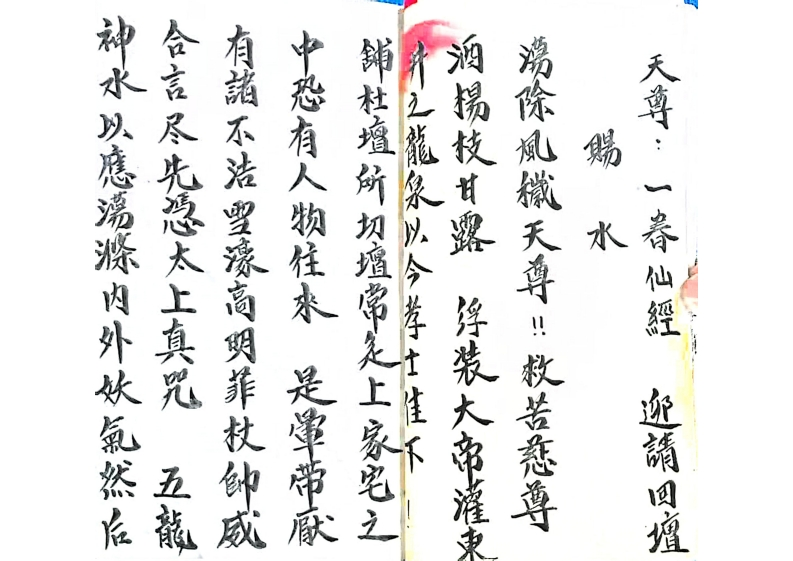 天尊：一眷仙經 迎請回壇
賜水
蕩除風穢天尊!! 救苦慈尊
酒楊枝甘露 浮裝大帝灌東
井之龍泉以今孝士佳下！
鋪杜壇所切壇常之上家宅之
中恐有人物住來 是暈帶厭
有諸不洁雪濠高明菲杖帥威
合言尽先憑太上真咒 五龍
神水以應蕩滌內外妖氣然后